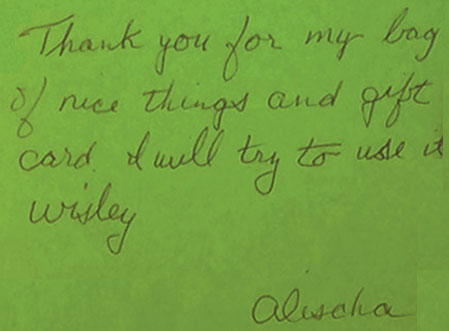 Thank you for my bag
of nice things and gift
card. I will try to use it
wisley
Alischa